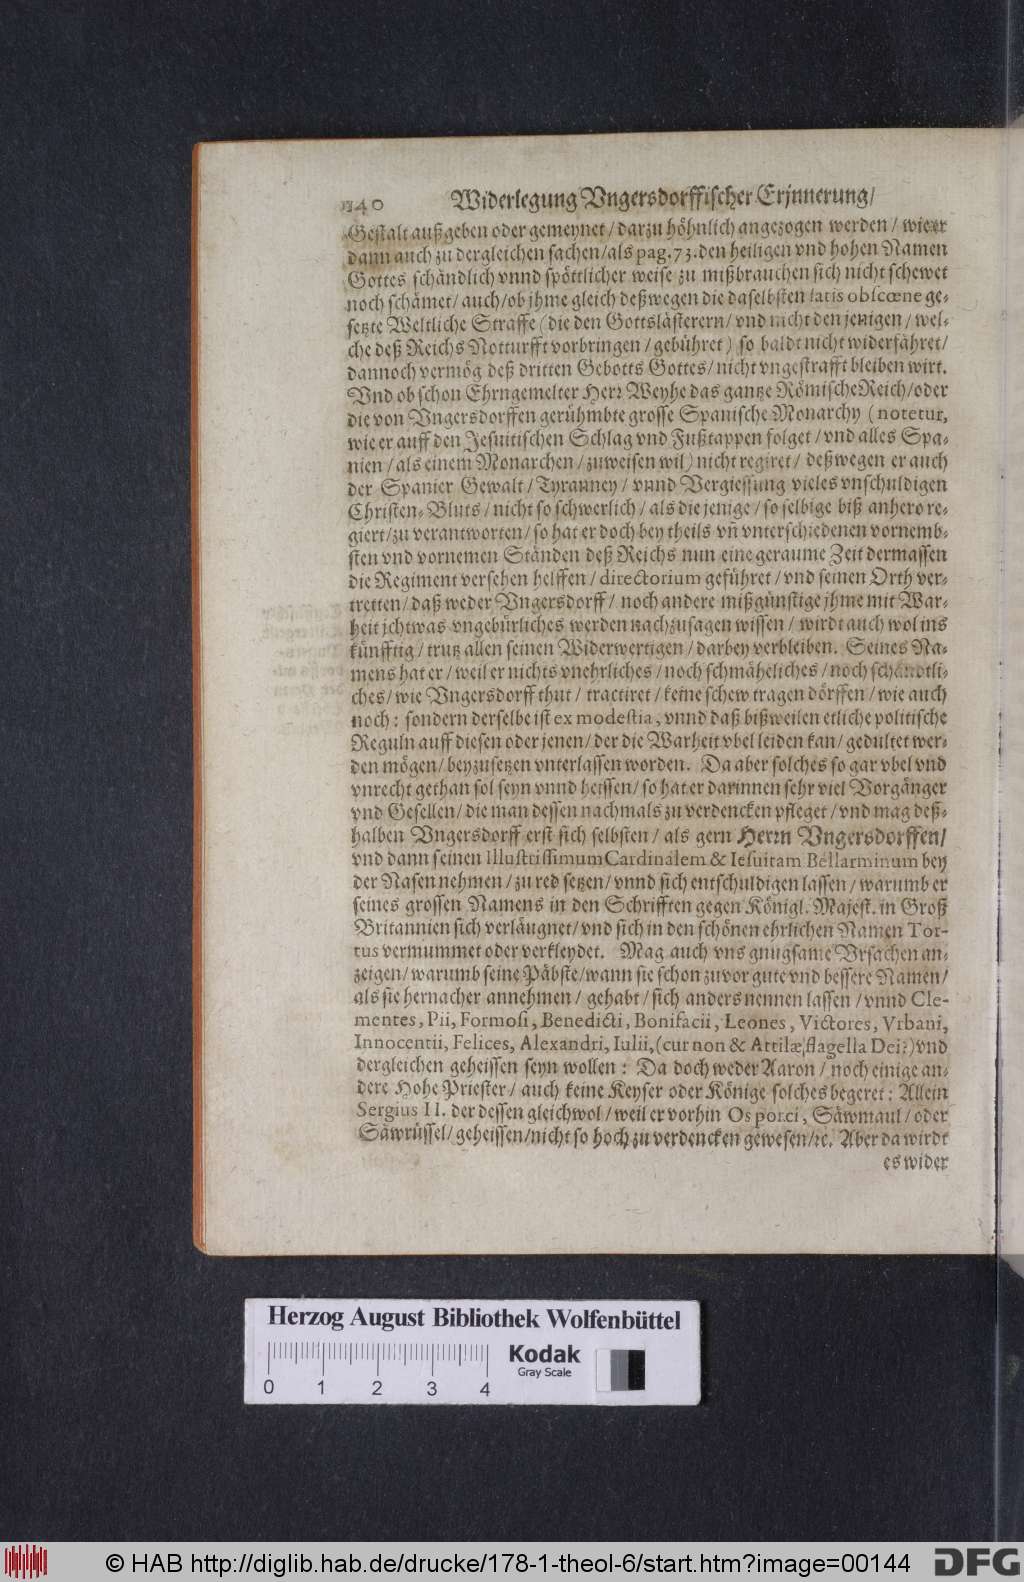 140 Widerlegung Vngersdorffischer Erjnnerung/
Gestalt außgeben oder gemeynet/ darzu höhnlich angezogen werden/ wie er
dann auch zu dergleichen sachen/als pag. 73. den heiligen vnd hohen Namen
Gottes schändlich vnnd spöttlicher weise zu mißbrauchen sich nicht schewet
noch schämet/ auch/ ob jhme gleich deßwegen die daselbsten satis obscœne ge-
setzte Weltliche Straffe (die den Gottslästerern/ vnd nicht den jenigen/ wel-
che deß Reichs Notturfft vorbringen/ gebühret) so baldt nicht widerfähret/
dannoch vermög deß dritten Gebotts Gottes/ nicht vngestrafft bleiben wirt.
Vnd ob schon Ehrngemelter Herr Weyhe das gantze Römische Reich/oder
die von Vngersdorffen gerühmbte grosse Spanische Monarchy (notetur,
wie er auff den Jesuitischen Schlag vnd Fußtappen folget/ vnd alles Spa-
nien/ als einem Monarchen/ zuweisen wil) nicht regiret/ deßwegen er auch
der Spanier Gewalt/ Tyranney/ vnnd Vergiessung vieles vnschuldigen
Christen-Bluts/ nicht so schwerlich/ als die jenige/ so selbige biß anhero re-
giert/ zu verantworten/ so hat er doch bey theils vñ vnterschiedenen vornemb-
sten vnd vornemen Ständen deß Reichs nun eine geraume Zeit dermassen
die Regiment versehen helffen/ directorium geführet/ vnd seinen Orth ver-
tretten/ daß weder Vngersdorff/ noch andere mißgünstige jhme mit War-
heit jchtwas vngebürliches werden nachzusagen wissen/ wirdt auch wol ins
künfftig/ trutz allen seinen Widerwertigen/ darbey verbleiben. Seines Na-
mens hat er/ weil er nichts vnehrliches/ noch schmäheliches/ noch schändtli-
ches/ wie Vngersdorff thut/ tractiret/ keine schew tragen dörffen/ wie auch
noch: sondern derselbe ist ex modestia, vnnd daß bißweilen etliche politische
Reguln auff diesen oder jenen/ der die Warheit vbel leiden kan/ gedultet wer-
den mögen/ beyzusetzen vnterlassen worden. Da aber solches so gar vbel vnd
vnrecht gethan sol seyn vnnd heissen/ so hat er darinnen sehr viel Vorgänger
vnd Gesellen/ die man dessen nachmals zu verdencken pfleget/ vnd mag deß-
halben Vngersdorff erst sich selbsten/ als gern Herrn Vngersdorffen/
vnd dann seinen Illustrissimum Cardinalem & Iesuitam Bellarminum bey
der Nasen nehmen/ zu red setzen/ vnnd sich entschuldigen lassen/ warumb er
seines grossen Namens in den Schrifften gegen Königl. Majest. in Groß
Britannien sich verläugnet/ vnd sich in den schönen ehrlichen Namen Tor-
tus vermummet oder verkleydet. Mag auch vns gnugsame Vrsachen an-
zeigen/ warumb seine Päbste/ wann sie schon zuvor gute vnd bessere Namen/
als sie hernacher annehmen/ gehabt/ sich anders nennen lassen/ vnnd Cle-
mentes, Pii, Formosi, Benedicti, Bonifacii, Leones, Victores, Vrbani,
Innocentii, Felices, Alexandri, Iulii, (cur non & Attilæ, flagella Dei?) vnd
dergleichen geheissen seyn wollen: Da doch weder Aaron/ noch einige an-
dere Hohe Priester/ auch keine Keyser oder Könige solches begeret: Allein
Sergius II. der dessen gleichwol/ weil er vorhin Os porci, Säwmaul/ oder
Säwrüssel/ geheissen/ nicht so hoch zu verdencken gewesen/ ꝛc. Aber da wirdt
es wider
Herzog August Bibliothek Wolfenbüttel
Kodak
Gray Scale
0 1 2 3 4
© HAB http://diglib.hab.de/drucke/178-1-theol-6/start.htm?image=00144
DFG